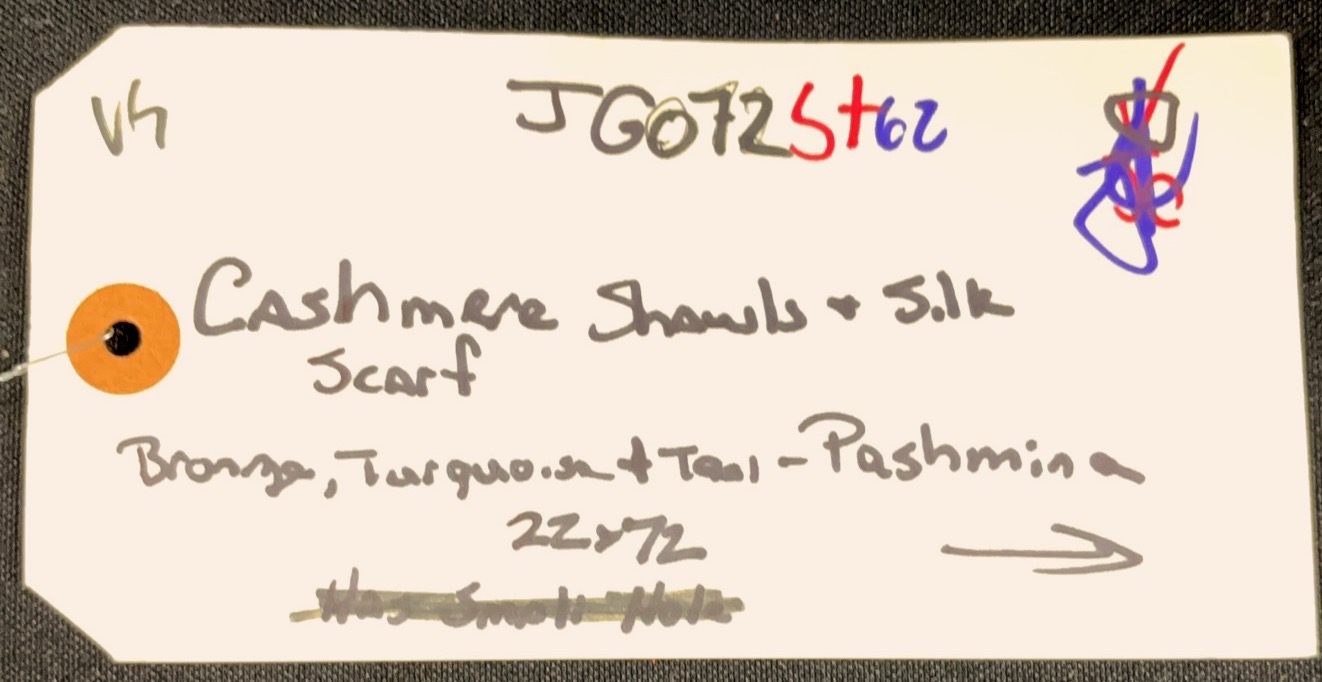 VH JG072St62
Cashmere Shawls + Silk
Scarf
Bronze, Turquoise + Teal - Pashmina
22x72
Has Small Hole